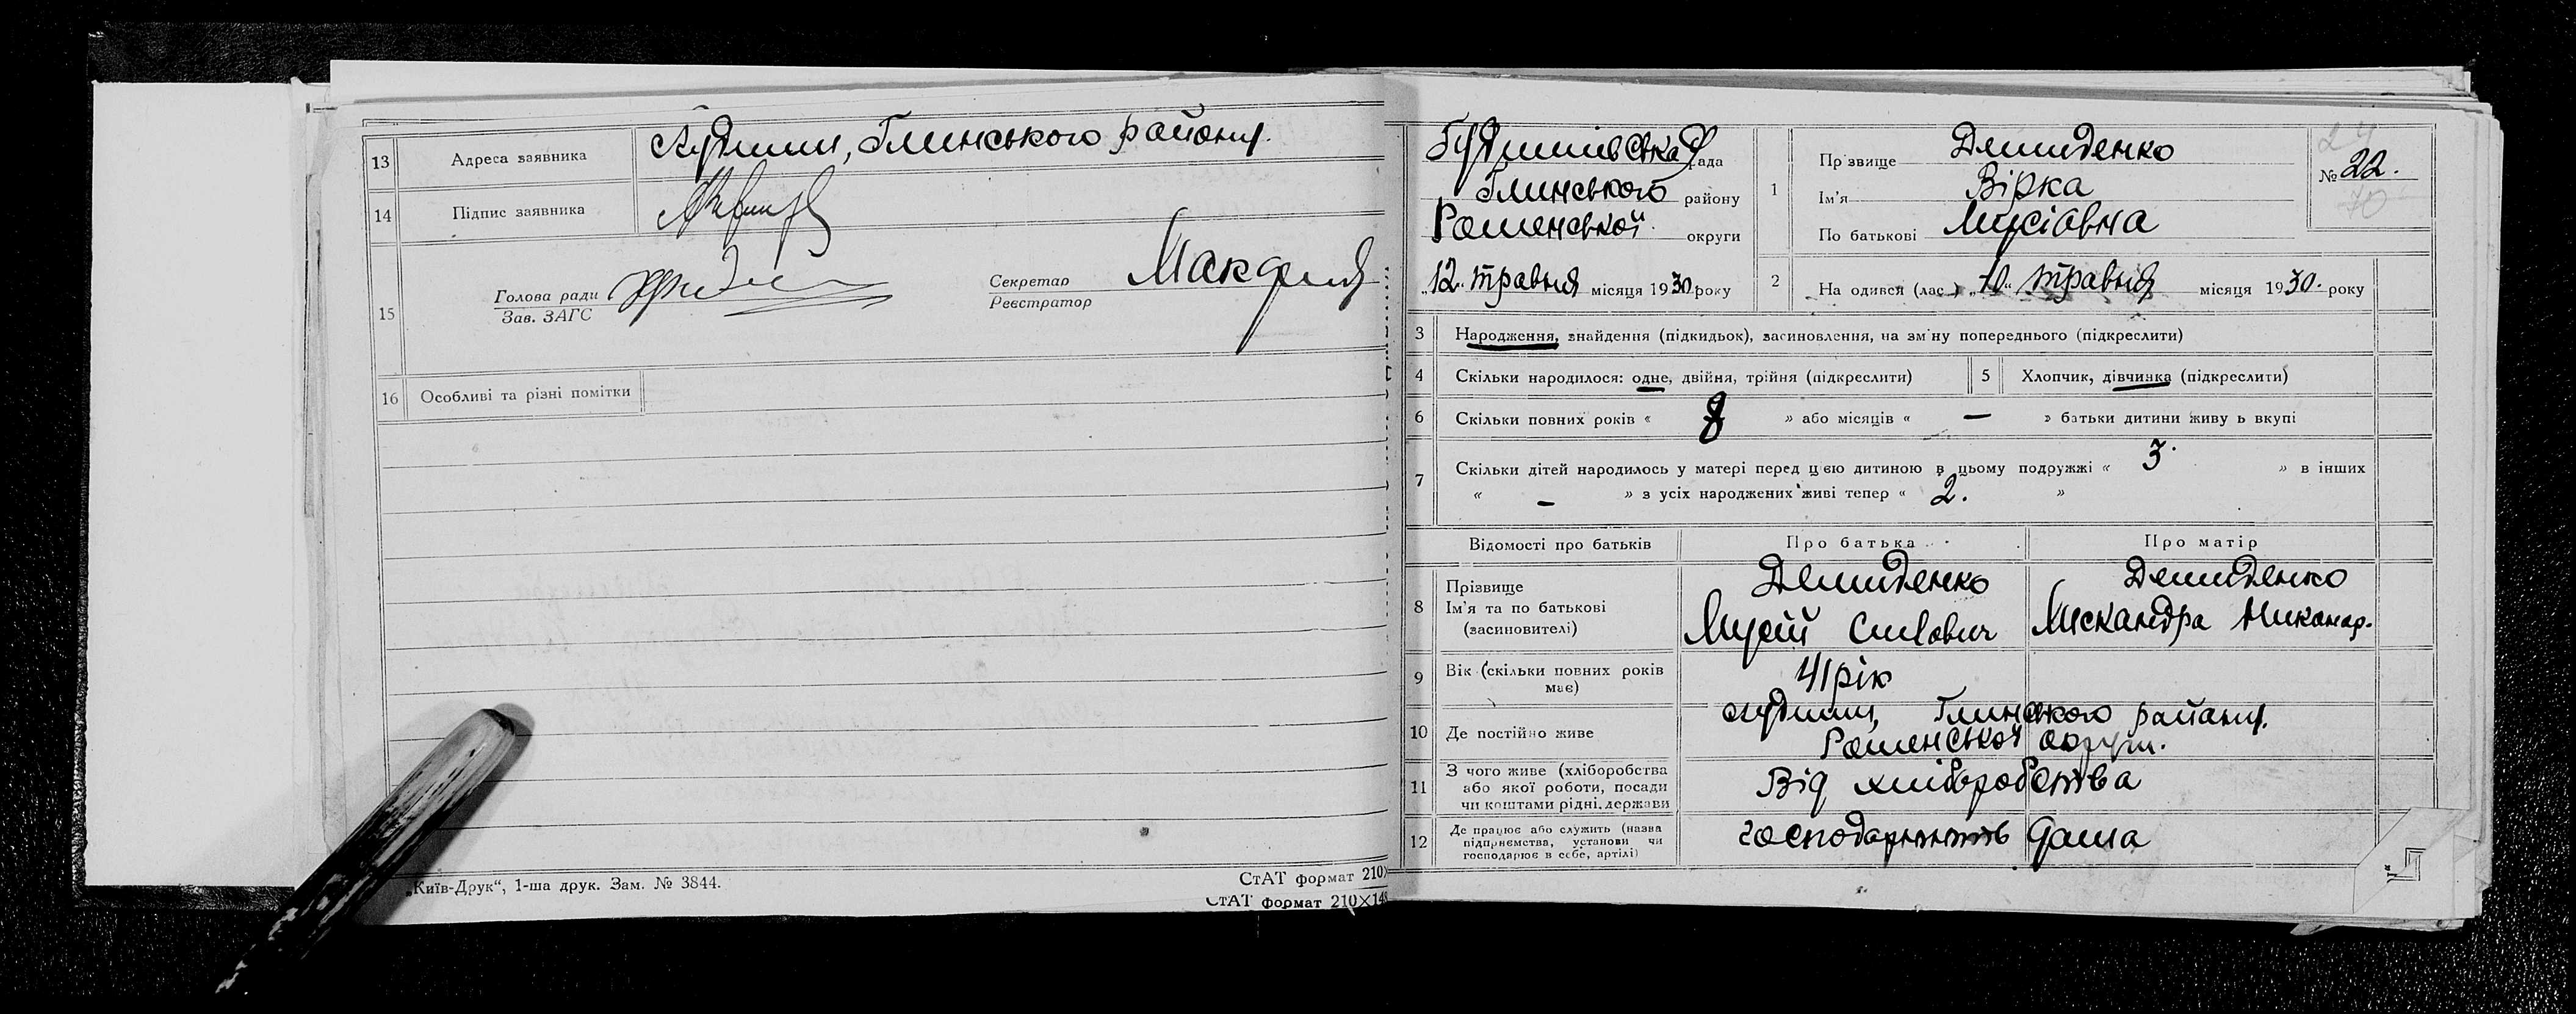 13 Адреса заявника Глинського району.
14 Підпис заявника
15 Голова ради
Зав. ЗАГС
Секретар
Реєстратор
16 Особливі та різні помітки
„Київ-Друк“, 1-ша друк. Зам. № 3844.
СтАТ формат 210×
СтАТ формат 210×148
рада
Глинського району
Роменської округи
„12“ травня місяця 1930 року
1 Прізвище Демиденко
Ім'я Вірка
По батькові Мусіівна
№ 22.
24
70
2 На одився (лас ) „10“ травня місяця 1930. року
3 Народження, знайдення (підкидьок), засиновлення, на зм ну попереднього (підкреслити)
4 Скільки народилося: одне, двійня, трійня (підкреслити)
5 Хлопчик, дівчинка (підкреслити)
6 Скільки повних років « 8 » або місяців « — » батьки дитини живу ь вкупі
7 Скільки дітей народилось у матері перед цією дитиною в цьому подружжі « 3. » в інших
« – » з усіх народжених живі тепер « 2. »
Відомості про батьків Про батька Про матір
8 Прізвище
Ім'я та по батькові
(засиновителі)
Демиденко
Мусій
Демиденко
Никанор.
9 Вік (скільки повних років
має)
41 рік
10 Де постійно живе
Глинського району.
Роменської округи.
11 З чого живе (хліборобства
або якої роботи, посади
чи коштами рідні, держави
Від хліборобства
12 Де працює або служить (назва
підприємства, установи чи
господарює в себе, артілі)
господарюють дома